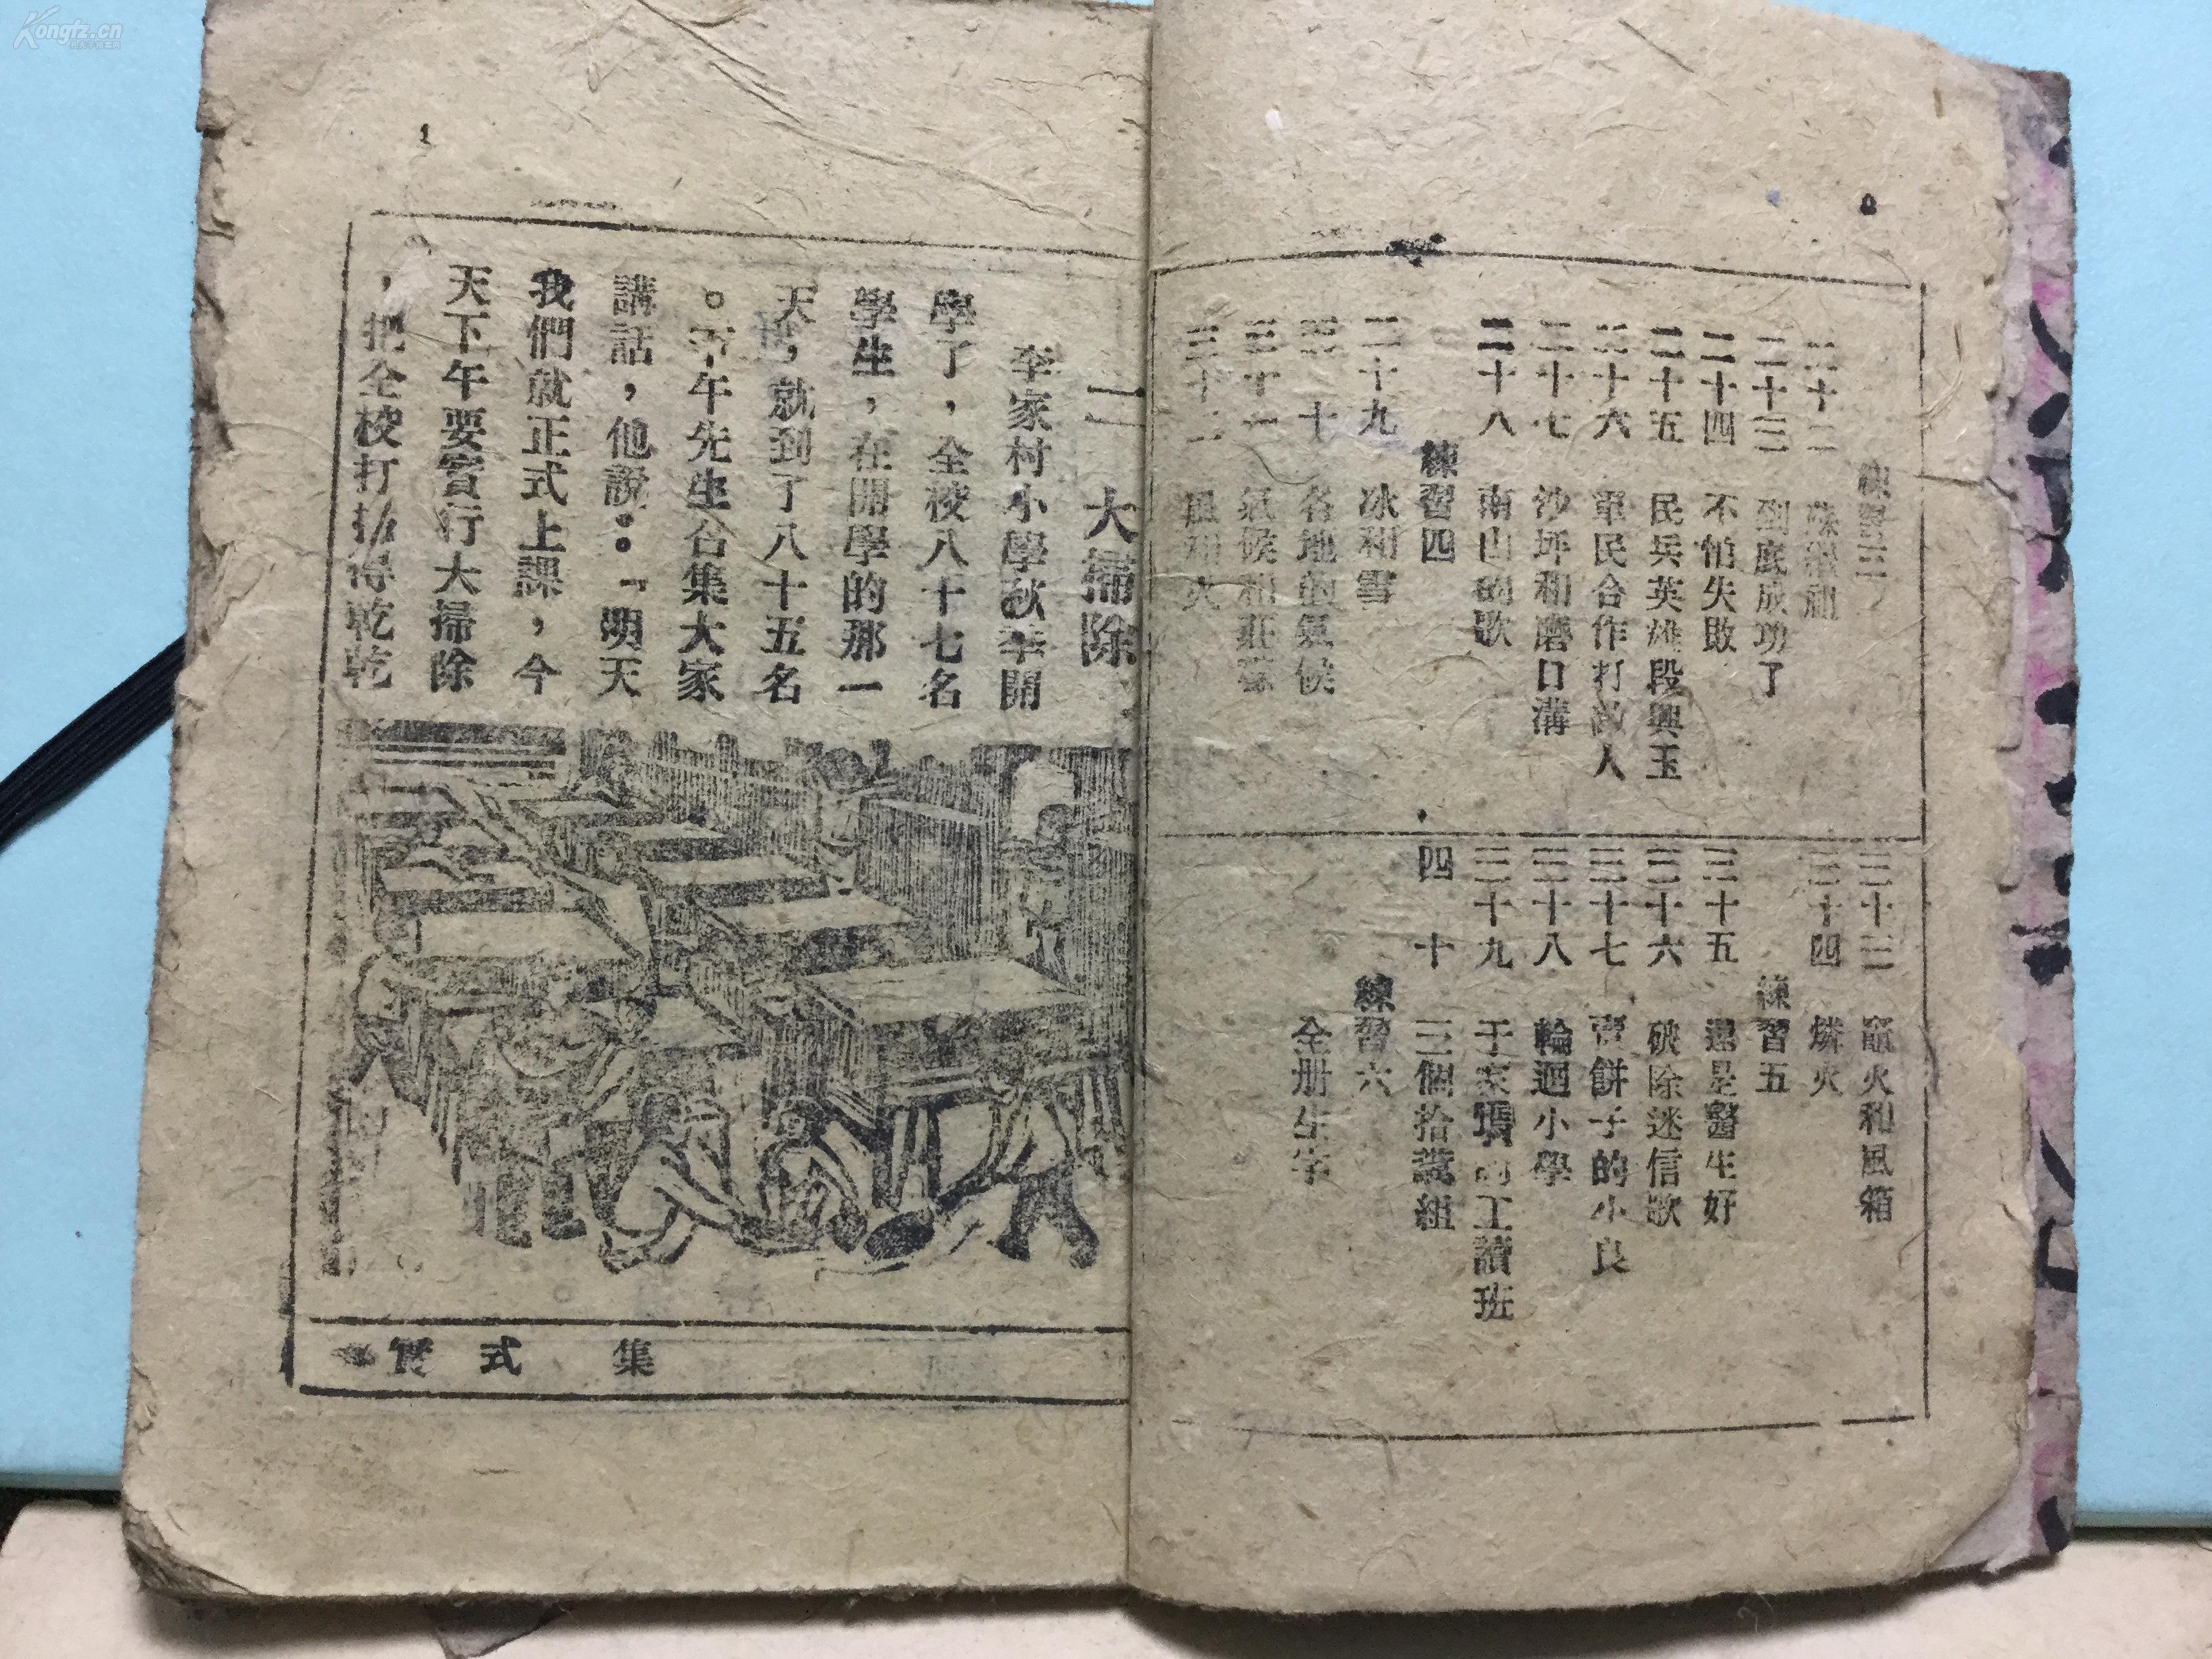 Kongfz.cn
練習三
二十二
二十三　到底成功了
二十四　不怕失敗
二十五　民兵英雄段興玉
二十六　軍民合作打敵人
二十七　沙坪和磨口溝
二十八　南山礦歌
練習四
二十九　冰和雪
三十　各地的氣候
三十一　氣候和莊稼
三十二　風和火
三十三　竈火和風箱
三十四　燐火
練習五
三十五　還是醫生好
三十六　破除迷信歌
三十七　賣餅子的小良
三十八　輪迴小學
三十九　于家的工讀班
四十　三個拾糞組
練習六
全册生字
1
一　大掃除
李家村小學秋季開
學了，全校八十七名
學生，在開學的那一
天，就到了八十五名
。下午先生召集大家
講話，他說：「明天
我們就正式上課，今
天下午要實行大掃除
，把全校打掃得乾乾
集　式　實